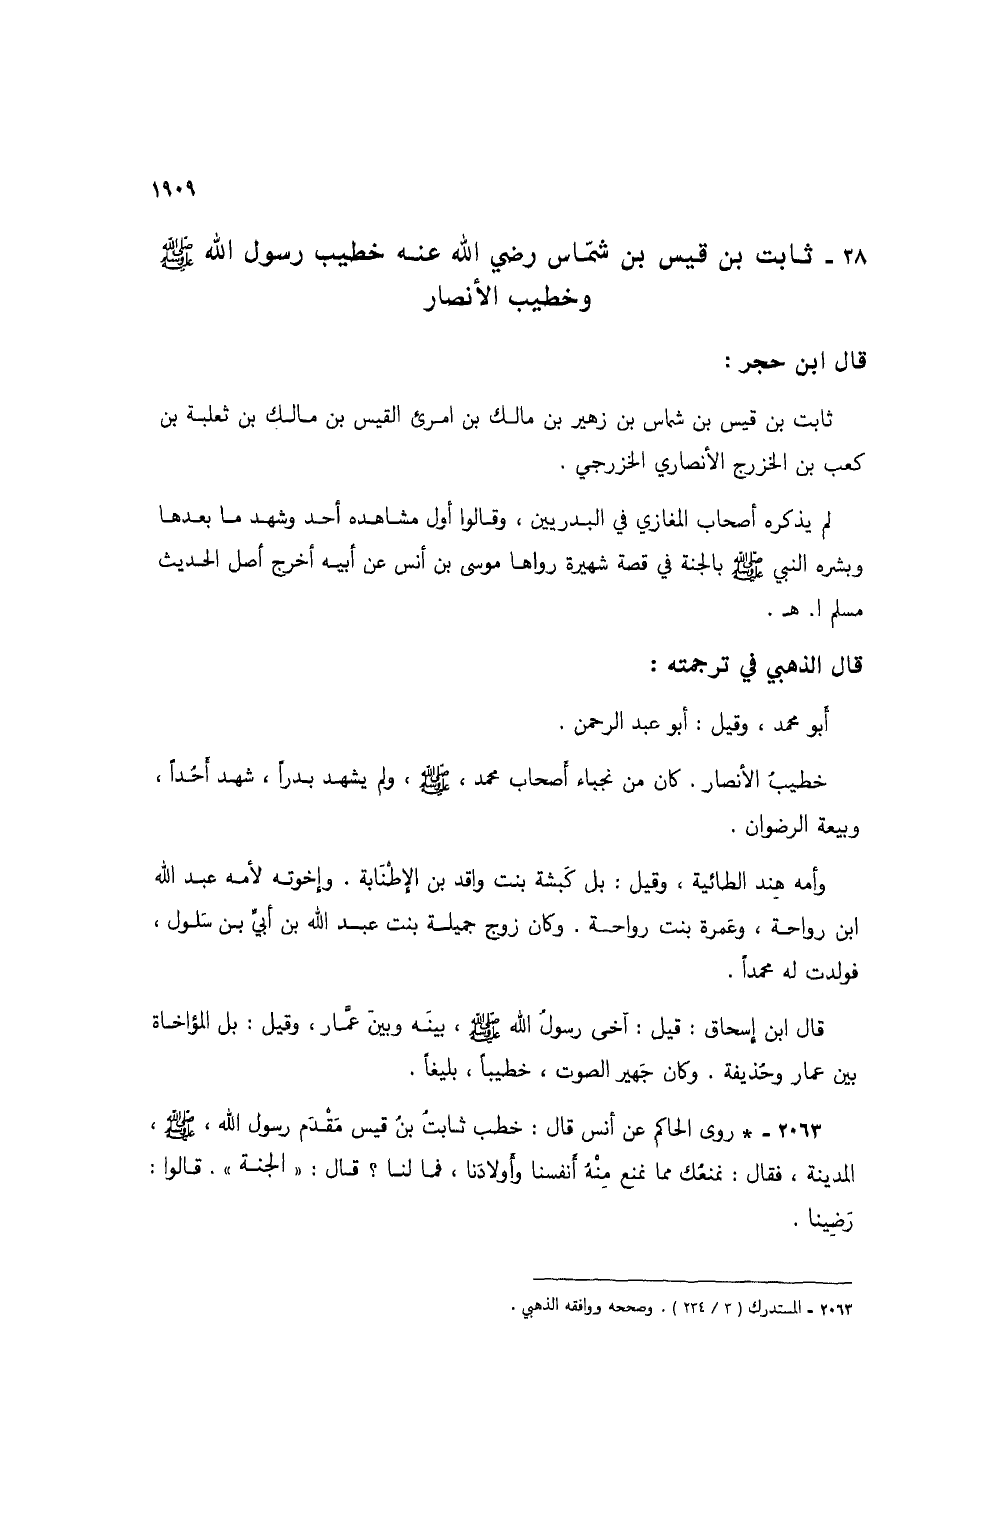 ١٩٠٩
٢٨ - ثابت بن قيس بن شمّاس رضي الله عنه خطيب رسول الله ﷺ
وخطيب الأنصار
قال ابن حجر :
ثابت بن قيس بن شماس بن زهير بن مالك بن امرئ القيس بن مالك بن ثعلبة بن
كعب بن الخزرج الأنصاري الخزرجي .
لم يذكره أصحاب المغازي في البدريين ، وقالوا أول مشاهده أحد وشهد ما بعدها
وبشره النبي ﷺ بالجنة في قصة شهيرة رواها موسى بن أنس عن أبيه أخرج أصل الحديث
مسلم ا. هـ .
قال الذهبي في ترجمته :
أبو محمد ، وقيل : أبو عبد الرحمن .
خطيبُ الأنصار . كان من نجباء أصحاب محمد ، ﷺ ، ولم يشهد بدراً ، شهد أُحُداً ،
وبيعة الرضوان .
وأمه هِند الطائية ، وقيل : بل كَبشة بنت واقد بن الإطْنَابة . وإخوته لأمه عبد الله
ابن رواحة ، وعَمرة بنت رواحة . وكان زوج جميلة بنت عبد الله بن أبيٍّ بن سَلول ،
فولدت له محمداً .
قال ابن إسحاق : قيل : آخى رسولُ الله ﷺ ، بينَه وبينَ عمَّار ، وقيل : بل المؤاخاة
بين عمار وحُذيفة . وكان جَهير الصوت ، خطيباً ، بليغاً .
٢٠٦٣ - * روى الحاكم عن أنس قال : خطب ثابتُ بنُ قيس مَقْدَم رسول الله ، ﷺ ،
المدينة ، فقال : نمنعُك مما نمنع مِنْهُ أنفسنا وأولادَنا ، فما لنا ؟ قال : « الجنة » . قالوا :
رَضِينا .
٢٠٦٣ - المستدرك ( ٣ / ٢٣٤ ) . وصححه ووافقه الذهبي .